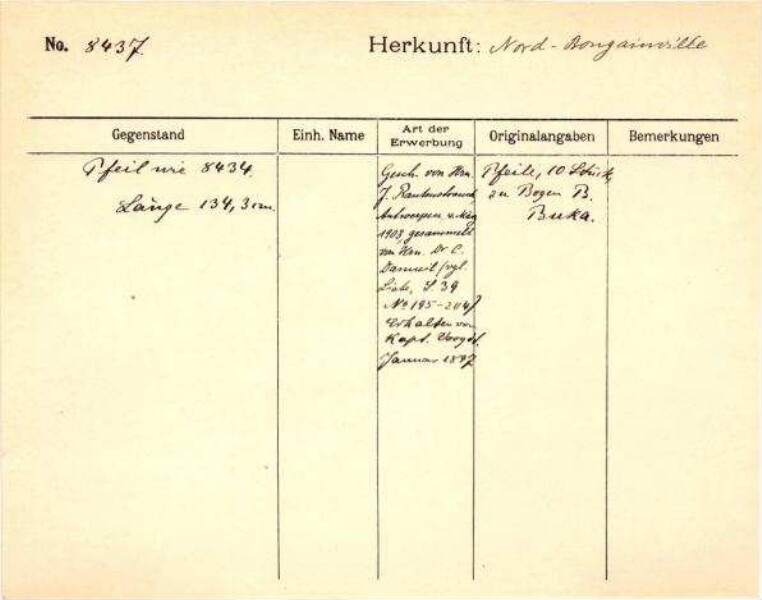 No. 8437. Herkunft: Nord-Bougainville
Gegenstand Einh. Name Art der Erwerbung Originalangaben Bemerkungen
Pfeil wie 8434.
Länge 134,3 cm.
Gesch. von Hrn.
J. Rautenstrauch,
Antwerpen, 
1903, gesammelt
von Hrn. Dr. C.
(vgl.
Liste, S. 39
No 195-204)
Erhalten von
Kapt. 
Januar 1897
Pfeile, 10 Stück,
zu Bogen B.
Buka.